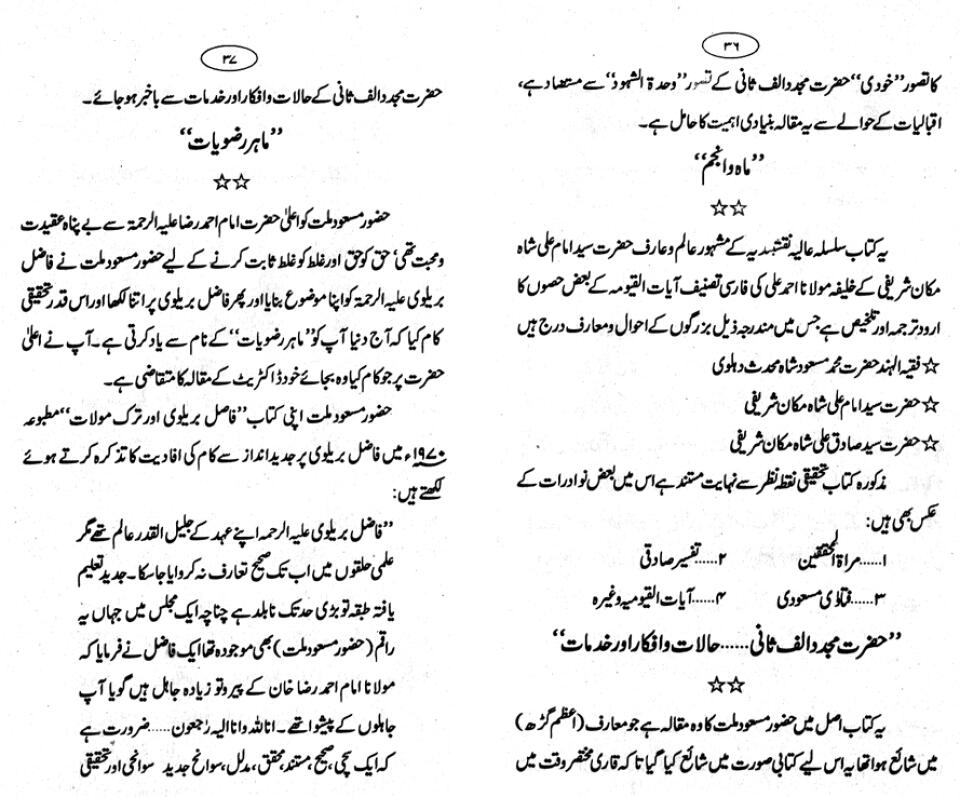 ۳۶
کا تصور "خودی" حضرت مجدد الف ثانی کے تصور "وحدۃ الشہود" سے مستضاد ہے،
اقبالیات کے حوالے سے یہ مقالہ بنیادی اہمیت کا حامل ہے۔
"ماہ وانجم"
☆☆
یہ کتاب سلسلہ عالیہ نقشبندیہ کے مشہور عالم و عارف حضرت سید امام علی شاہ
مکان شریفی کے خلیفہ مولانا احمد علی کی فارسی تصنیف آیات القیومہ کے بعض حصوں کا
ارود ترجمہ اور تلخیص ہے جس میں مندرجہ ذیل بزرگوں کے احوال و معارف درج ہیں
☆ فقیہ الہند حضرت محمد مسعود شاہ محدث دہلوی
☆ حضرت سید امام علی شاہ مکان شریفی
☆ حضرت سید صادق علی شاہ مکان شریفی
مذکورہ کتاب تحقیقی نقطہ نظر سے نہایت مستند ہے اس میں بعض نوادرات کے
عکس بھی ہیں:
۱......مراۃ المحققین ۲......تفسیر صادقی
۳......فتاوٰی مسعودی ۴......آیات القیومیہ وغیرہ
"حضرت مجدد الف ثانی......حالات وافکار اور خدمات"
☆☆
یہ کتاب اصل میں حضور مسعود ملت کا وہ مقالہ ہے جو معارف (اعظم گڑھ)
میں شائع ہوا تھا یہ اس لیے کتابی صورت میں شائع کیا گیا تا کہ قاری مختصر وقت میں
۳۷
حضرت مجدد الف ثانی کے حالات وافکار اور خدمات سے باخبر ہو جائے۔
"ماہر رضویات"
☆☆
حضور مسعود ملت کو اعلیٰ حضرت امام احمد رضا علیہ الرحمۃ سے بے پناہ عقیدت
ومحبت تھی، حق کو حق اور غلط کو غلط ثابت کرنے کے لیے حضور مسعود ملت نے فاضل
بریلوی علیہ الرحمۃ کو اپنا موضوع بنایا اور پھر فاضل بریلوی پر اتنا لکھا اور اس قدر تحقیقی
کام کیا کہ آج دنیا آپ کو "ماہر رضویات" کے نام سے یاد کرتی ہے۔ آپ نے اعلیٰ
حضرت پر جو کام کیا وہ بجائے خود ڈاکٹریٹ کے مقالہ کا متقاضی ہے۔
حضور مسعود ملت اپنی کتاب "فاصل بریلوی اور ترک مولات" مطبوعہ
۱۹۷۰ء میں فاضل بریلوی پر جدید انداز سے کام کی افادیت کا تذکرہ کرتے ہوئے
لکھتے ہیں:
"فاضل بریلوی علیہ الرحمہ اپنے عہد کے جلیل القدر عالم تھے مگر
علمی حلقوں میں اب تک صحیح تعارف نہ کروایا جا سکا۔ جدید تعلیم
یافتہ طبقہ تو بڑی حد تک نابلد ہے چناچہ ایک مجلس میں جہاں یہ
راقم (حضور مسعود ملت) بھی موجود تھا ایک فاضل نے فرمایا کہ
مولانا امام احمد رضا خان کے پیرو تو زیادہ جاہل ہیں گویا آپ
جاہلوں کے پیشوا تھے۔ انا للہ وانا الیہ رٰجعون......ضرورت ہے
کہ ایک سچی، صحیح، مستند، محقق، مدلل، سوانح جدید سوانحی اور تحقیقی